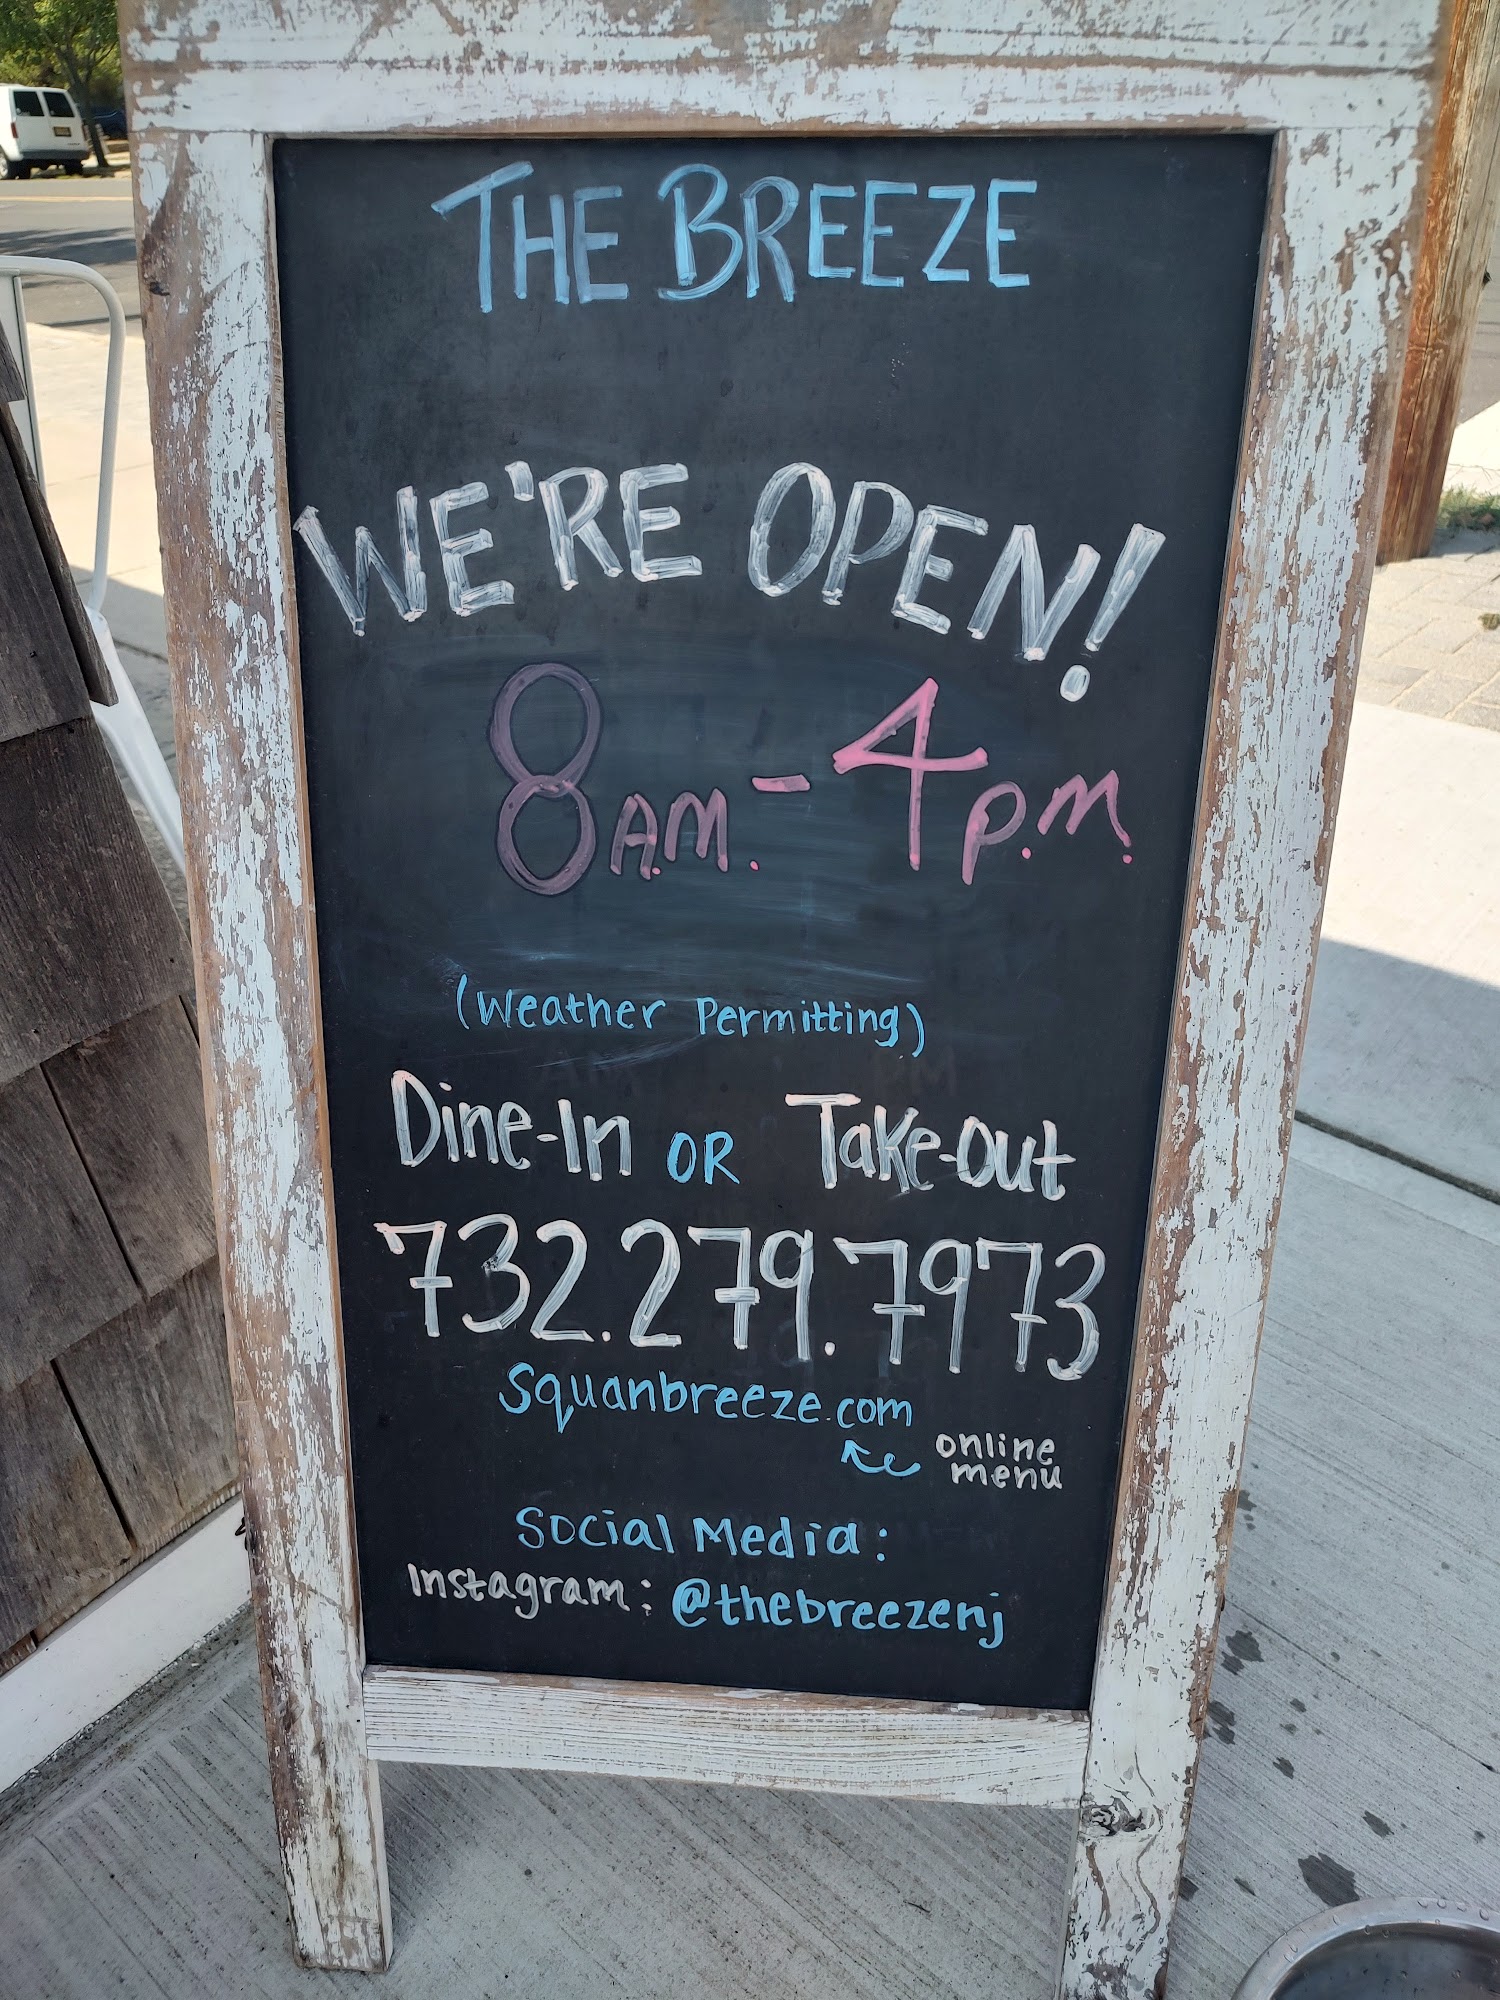 THE BREEZE
WE'RE OPEN!
8A.M. - 4P.M.
(Weather Permitting)
Dine-In OR Take-Out
732.279.7973
Squanbreeze.com
online
menu
Social Media:
Instagram: @thebreezenj